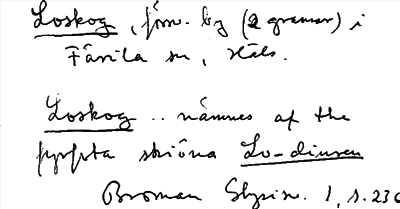 Loskog, förr. by (2 grannar) i
Färila sn, Häls.
Loskog .. nämnes af the
fyrsta skiöna Lo-diuren
Broman Glysisv. 1, s. 236